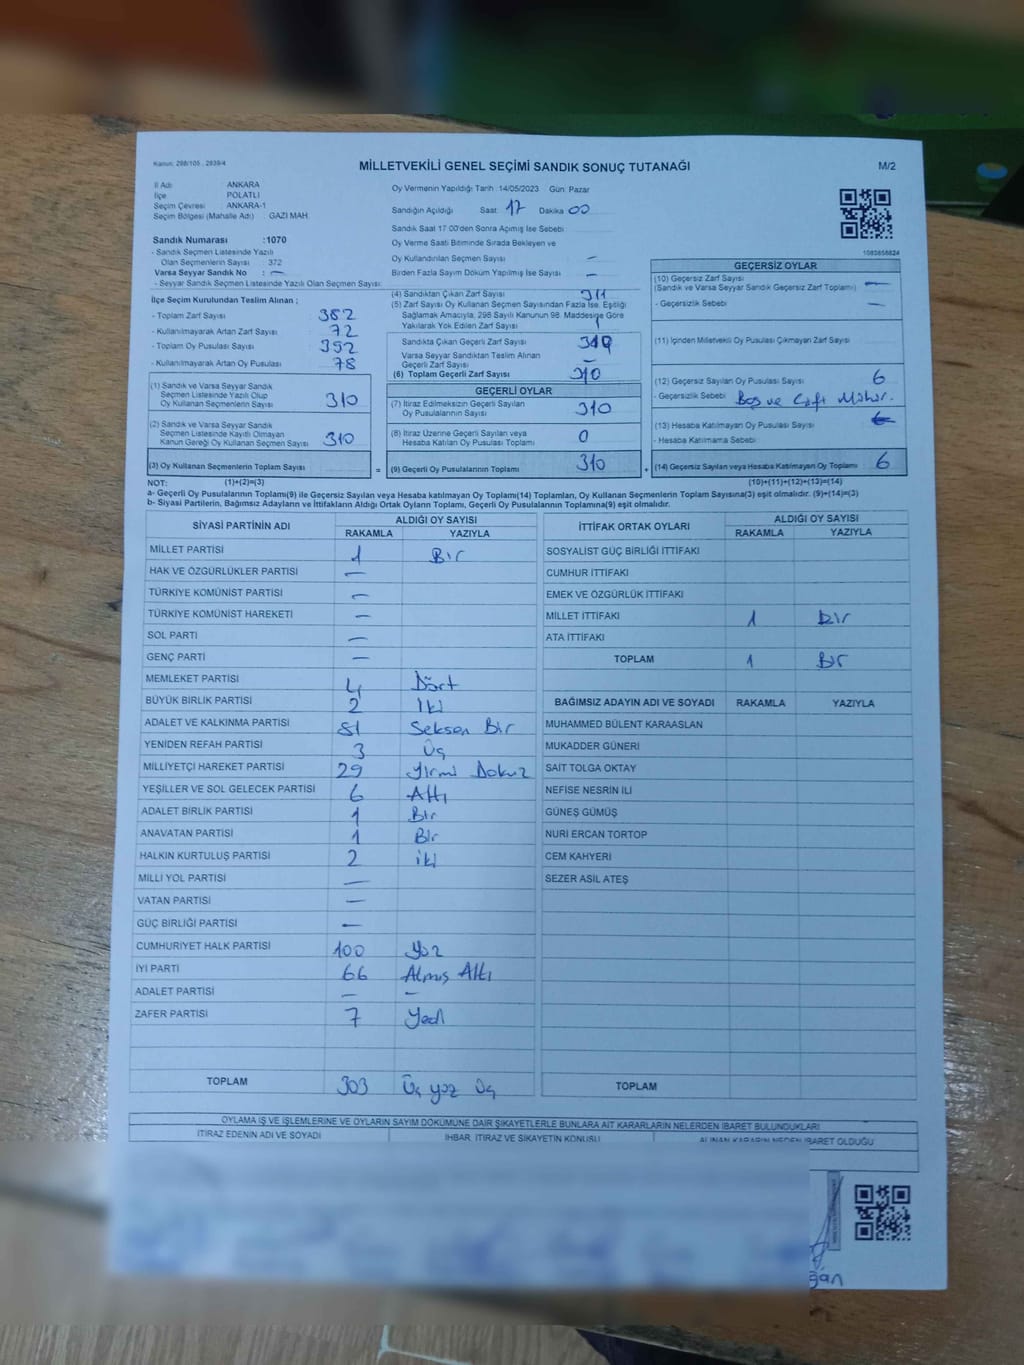 Kanun: 298/105 , 2839/4
MİLLETVEKİLİ GENEL SEÇİMİ SANDIK SONUÇ TUTANAĞI
M/2
İl Adı ANKARA
İlçe POLATLI
Seçim Çevresi ANKARA-1
Seçim Bölgesi (Mahalle Adı) : GAZİ MAH.
Sandık Numarası :1070
- Sandık Seçmen Listesinde Yazılı
Olan Seçmenlerin Sayısı : 372
Varsa Seyyar Sandık No : —
- Seyyar Sandık Seçmen Listesinde Yazılı Olan Seçmen Sayısı:
Oy Vermenin Yapıldığı Tarih :14/05/2023 Gün: Pazar
Sandığın Açıldığı Saat: 17 Dakika 00
Sandık Saat 17:00'den Sonra Açımış İse Sebebi
Oy Verme Saati Bitiminde Sırada Bekleyen ve
Oy Kullandırılan Seçmen Sayısı —
Birden Fazla Sayım Döküm Yapılmış İse Sayısı —
1083858824
İlçe Seçim Kurulundan Teslim Alınan ;
- Toplam Zarf Sayısı
- Kullanılmayarak Artan Zarf Sayısı 72
- Toplam Oy Pusulası Sayısı
- Kullanılmayarak Artan Oy Pusulası 78
(1) Sandık ve Varsa Seyyar Sandık
Seçmen Listesinde Yazılı Olup
Oy Kullanan Seçmenlerin Sayısı 310
(2) Sandık ve Varsa Seyyar Sandık
Seçmen Listesinde Kayıtlı Olmayan
Kanun Gereği Oy Kullanan Seçmen Sayısı 310
(3) Oy Kullanan Seçmenlerin Toplam Sayısı
(4) Sandıktan Çıkan Zarf Sayısı 311
(5) Zarf Sayısı Oy Kullanan Seçmen Sayısından Fazla İse, Eşitliği
Sağlamak Amacıyla, 298 Sayılı Kanunun 98. Maddesine Göre
Yakılarak Yok Edilen Zarf Sayısı 1
Sandıkta Çıkan Geçerli Zarf Sayısı
Varsa Seyyar Sandıktan Teslim Alınan
Geçerli Zarf Sayısı —
(6) Toplam Geçerli Zarf Sayısı 310
GEÇERLİ OYLAR
(7) İtiraz Edilmeksizin Geçerli Sayılan
Oy Pusulalarının Sayısı 310
(8) İtiraz Üzerine Geçerli Sayılan veya
Hesaba Katılan Oy Pusulası Toplamı 0
= (9) Geçerli Oy Pusulalarının Toplamı 310
GEÇERSİZ OYLAR
(10) Geçersiz Zarf Sayısı
(Sandık ve Varsa Seyyar Sandık Geçersiz Zarf Toplamı) —
- Geçersizlik Sebebi —
(11) İçinden Milletvekili Oy Pusulası Çıkmayan Zarf Sayısı
(12) Geçersiz Sayılan Oy Pusulası Sayısı 6
- Geçersizlik Sebebi Boş ve Çift Mühür.
(13) Hesaba Katılmayan Oy Pusulası Sayısı
- Hesaba Katılmama Sebebi
+ (14) Geçersiz Sayılan veya Hesaba Katılmayan Oy Toplamı 6
NOT: (1)+(2)=(3) (10)+(11)+(12)+(13)=(14)
a- Geçerli Oy Pusulalarının Toplamı(9) ile Geçersiz Sayılan veya Hesaba katılmayan Oy Toplamı(14) Toplamları, Oy Kullanan Seçmenlerin Toplam Sayısına(3) eşit olmalıdır. (9)+(14)=(3)
b- Siyasi Partilerin, Bağımsız Adayların ve İttifakların Aldığı Ortak Oyların Toplamı, Geçerli Oy Pusulalarının Toplamına(9) eşit olmalıdır.
SİYASİ PARTİNİN ADI ALDIĞI OY SAYISI
RAKAMLA YAZIYLA
MİLLET PARTİSİ 1 Bir
HAK VE ÖZGÜRLÜKLER PARTİSİ —
TÜRKİYE KOMÜNİST PARTİSİ —
TÜRKİYE KOMÜNİST HAREKETİ —
SOL PARTİ —
GENÇ PARTİ —
MEMLEKET PARTİSİ 4 Dört
BÜYÜK BİRLİK PARTİSİ 2 İki
ADALET VE KALKINMA PARTİSİ 81 Seksen Bir
YENİDEN REFAH PARTİSİ 3 Üç
MİLLİYETÇİ HAREKET PARTİSİ 29 Yirmi Dokuz
YEŞİLLER VE SOL GELECEK PARTİSİ 6 Altı
ADALET BİRLİK PARTİSİ 1 Bir
ANAVATAN PARTİSİ 1 Bir
HALKIN KURTULUŞ PARTİSİ 2 iki
MİLLİ YOL PARTİSİ —
VATAN PARTİSİ —
GÜÇ BİRLİĞİ PARTİSİ —
CUMHURİYET HALK PARTİSİ 100 Yüz
İYİ PARTİ 66 Altmış Altı
ADALET PARTİSİ — —
ZAFER PARTİSİ 7 Yedi
TOPLAM 303 Üç yüz Üç
İTTİFAK ORTAK OYLARI ALDIĞI OY SAYISI
RAKAMLA YAZIYLA
SOSYALİST GÜÇ BİRLİĞİ İTTİFAKI
CUMHUR İTTİFAKI
EMEK VE ÖZGÜRLÜK İTTİFAKI
MİLLET İTTİFAKI 1 Bir
ATA İTTİFAKI
TOPLAM 1 Bir
BAĞIMSIZ ADAYIN ADI VE SOYADI RAKAMLA YAZIYLA
MUHAMMED BÜLENT KARAASLAN
MUKADDER GÜNERİ
SAİT TOLGA OKTAY
NEFİSE NESRİN İLİ
GÜNEŞ GÜMÜŞ
NURİ ERCAN TORTOP
CEM KAHYERİ
SEZER ASİL ATEŞ
TOPLAM
OYLAMA İŞ VE İŞLEMLERİNE VE OYLARIN SAYIM DÖKÜMÜNE DAİR ŞİKAYETLERLE BUNLARA AİT KARARLARIN NELERDEN İBARET BULUNDUKLARI
İTİRAZ EDENİN ADI VE SOYADI İHBAR, İTİRAZ VE ŞİKAYETİN KONUSU ALINAN KARARIN NEDEN İBARET OLDUĞU